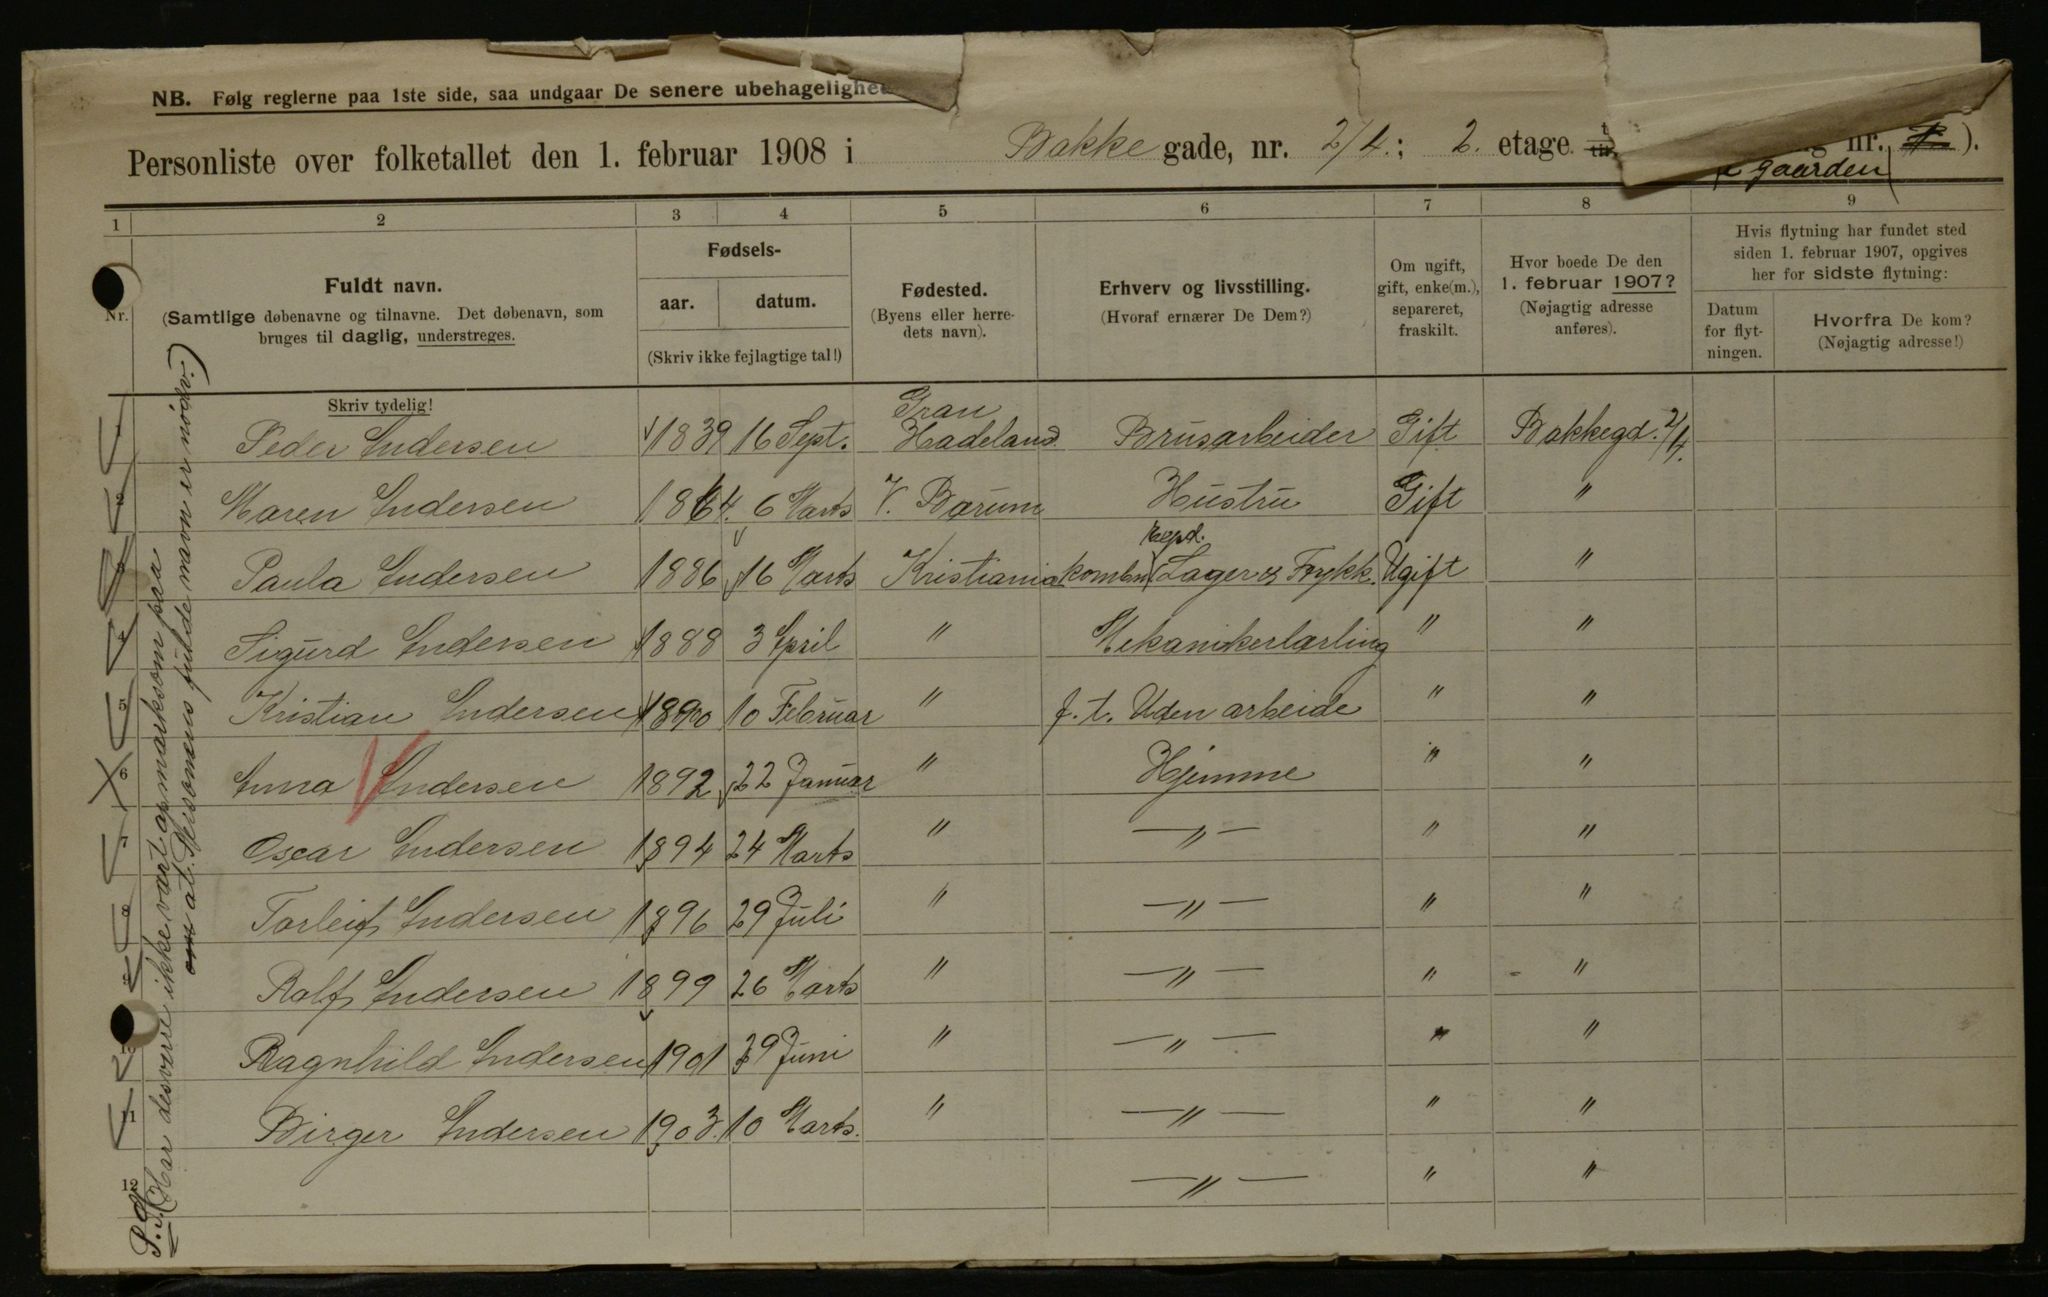 NB. Følg reglerne paa 1ste side, saa undgaar De senere ubehagelighe
Personliste over folketallet den 1. februar 1908 i Bakke gade, nr. 2/4.; 2. etage nr. ).
gaarden
1 2 3 4 5 6 7 8 9
Nr.
Fuldt navn.
(Samtlige døbenavne og tilnavne. Det døbenavn, som
bruges til daglig, understreges.
Skriv tydelig!
Fødsels-
aar. datum.
(Skriv ikke fejlagtige tal!)
Fødested.
(Byens eller herre-
dets navn).
Erhverv og livsstilling.
(Hvoraf ernærer De Dem?)
Om ugift,
gift, enke(m.),
separeret,
fraskilt.
Hvor boede De den
1. februar 1907?
(Nøjagtig adresse
anføres).
Hvis flytning har fundet sted
siden 1. februar 1907, opgives
her for sidste flytning:
Datum
for flyt-
ningen.
Hvorfra De kom?
(Nøjagtig adresse!)
1 Peder Andersen 1839 16 Sept. Gran Hadeland Brusarbeider Gift Bakkegd. 2/4.
2 Maren Andersen 1864. 6 Marts V. Bærum Hustru Gift "
3 Paula Andersen 1886 16 Marts Kristiania Lager & Trykk. Ugift "
4 Sigurd Andersen 1888 3 April " Mekanikerlærling " "
5 Kristian Andersen 1890 10 Februar " f. t. Uden arbeide " "
6 Anna Andersen 1892 22 Januar " Hjemme " "
7 Oscar Andersen 1894 24 Marts " —"— " "
8 Torleif Andersen 1896 29 Juli " —"— " "
9 Rolf Andersen 1899 26 Marts " —"— " "
10 Ragnhild Andersen 1901 29 Juni " —"— " "
11 Birger Andersen 1903. 10 Marts. " —"— " "
12 —"— " "
(Har desværre ikke vært opmærksom paa
at Personens fulde navn er nødv.)